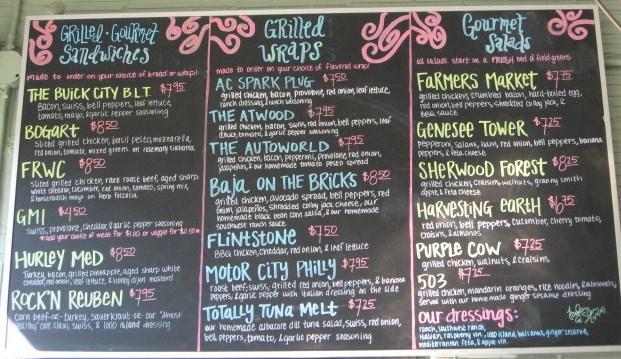 GRILLED · GOURMET
SANDWICHES
made to order on your choice of bread or wrap!
THE BUICK CITY B.L.T. $7.95
Bacon, swiss, bell peppers, leaf lettuce,
tomato, mayo, & garlic pepper seasoning
BOGART $8.50
Sliced grilled chicken, basil pesto, mozzarella,
red onion, tomato, mixed greens on rosemary ciabatta
FRWC $8.50
Sliced grilled chicken, rare roast beef, aged sharp
white cheddar, cucumber, red onion, tomato, spring mix,
& horseradish mayo on herb foccacia
GMI $4.50
Swiss, provolone, cheddar, & garlic pepper seasoning
*add your choice of meat for $2.00 or veggie for $2.50*
HURLEY MED $8.50
Turkey, bacon, grilled pineapple, aged sharp white
cheddar, red onion, leaf lettuce, & honey dijon mustard
ROCK'N REUBEN $7.95
corn beef -or- turkey, sauerkraut -or- our "almost
healthy" cole slaw, swiss, & 1000 island dressing
GRILLED
WRAPS
made to order on your choice of flavored wrap!
AC SPARK PLUG $7.50
grilled chicken, bacon, provolone, red onion, leaf lettuce,
ranch dressing, ranch seasoning
THE ATWOOD $7.95
grilled chicken, bacon, swiss, red onion, bell peppers, leaf
lettuce, tomato, & garlic pepper seasoning
THE AUTOWORLD $7.95
grilled chicken, bacon, pepperoni, provolone, red onion,
jalapeños, & our homemade tomato pesto spread
BAJA ON THE BRICKS $8.50
grilled chicken, avocado spread, bell peppers, red
onion, jalapeños, shredded colby jack cheese, our
homemade black bean corn salsa, & our homemade
southwest ranch sauce
FLINTSTONE $7.50
BBQ chicken, cheddar, red onion, & leaf lettuce
MOTOR CITY PHILLY $7.95
roast beef, swiss, grilled red onion, bell peppers, & banana
peppers, & garlic pepper with italian dressing on the side
TOTALLY TUNA MELT $7.25
our homemade albacore dill tuna salad, swiss, red onion,
bell peppers, tomato, & garlic pepper seasoning
Gourmet
Salads
all salads start on a FRESH bed of field greens
FARMERS MARKET $7.75
grilled chicken, crumbled bacon, hard-boiled egg,
red onion, bell peppers, shredded colby jack, &
BBQ sauce
GENESEE TOWER $7.25
pepperoni, salami, ham, red onion, bell peppers, banana
peppers, & feta cheese
SHERWOOD FOREST $8.25
grilled chicken, craisins, walnuts, granny smith
apple, & feta cheese
HARVESTING EARTH $6.75
red onion, bell peppers, cucumber, cherry tomato,
craisins, & almonds
PURPLE COW $7.25
grilled chicken, walnuts, & craisins
503 $7.75
grilled chicken, mandarin oranges, rice noodles, & almonds,
served with our homemade ginger sesame dressing
our dressings:
ranch, southwest ranch,
italian, raspberry vin., 1000 island, balsamic, ginger sesame,
mediterranean feta, & apple vin.